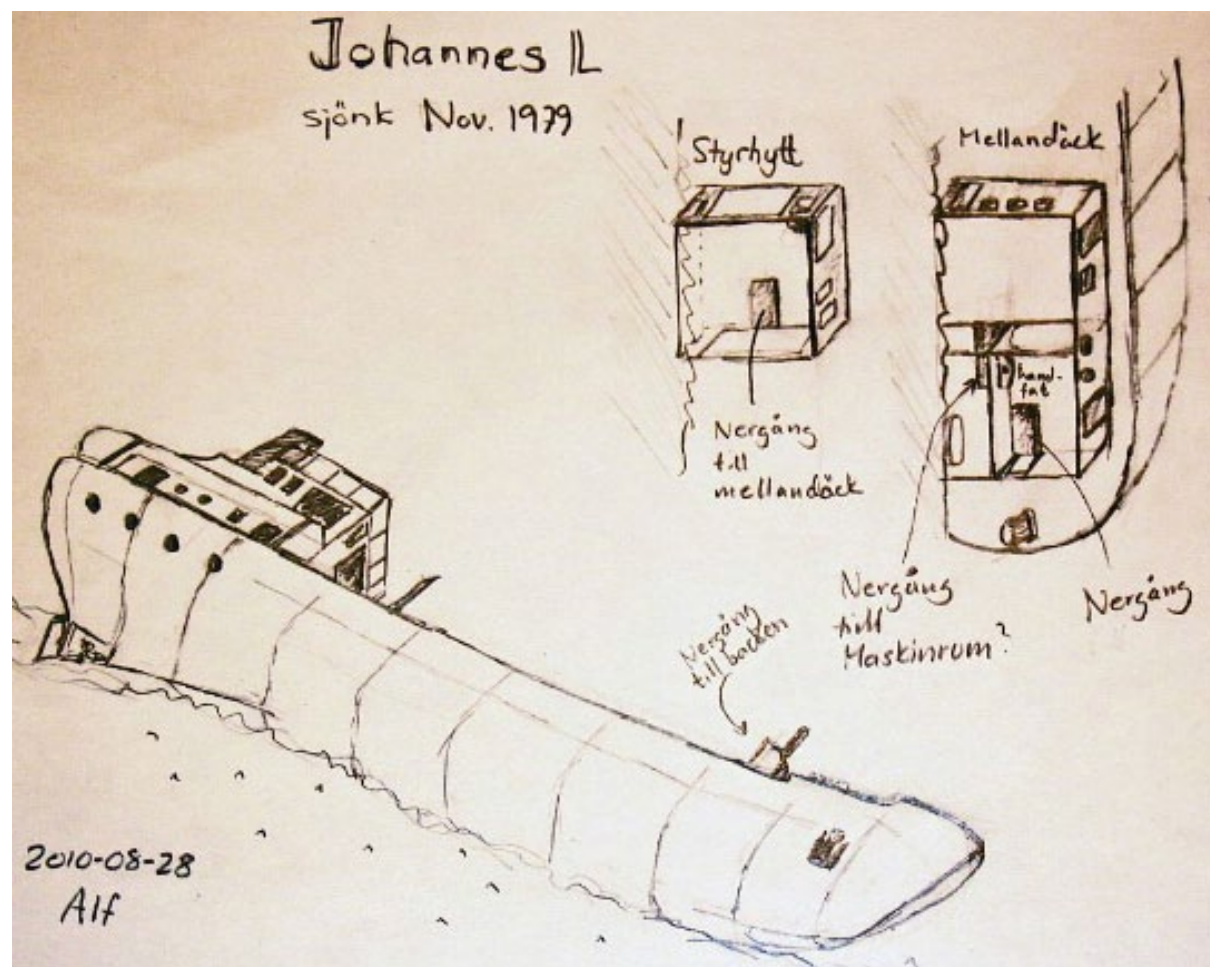 Johannes L
sjönk Nov. 1979
Styrhytt
Mellandäck
hand-
fat
Nergång
till
mellandäck
Nergång
till
Maskinrum?
Nergång
Nergång
till backen
2010-08-28
Alf